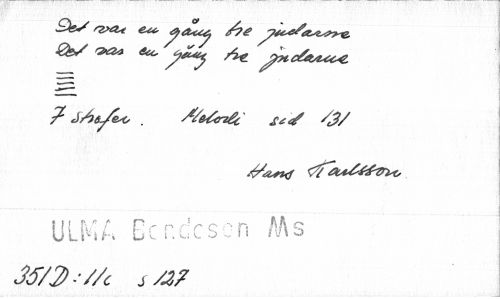 Det var en gång tre judarne
Det var en gång tre judarne
7 strofer. Melodi sid 131
Hans Karlsson.
ULMA Bondeson Ms
351D:11c s 127